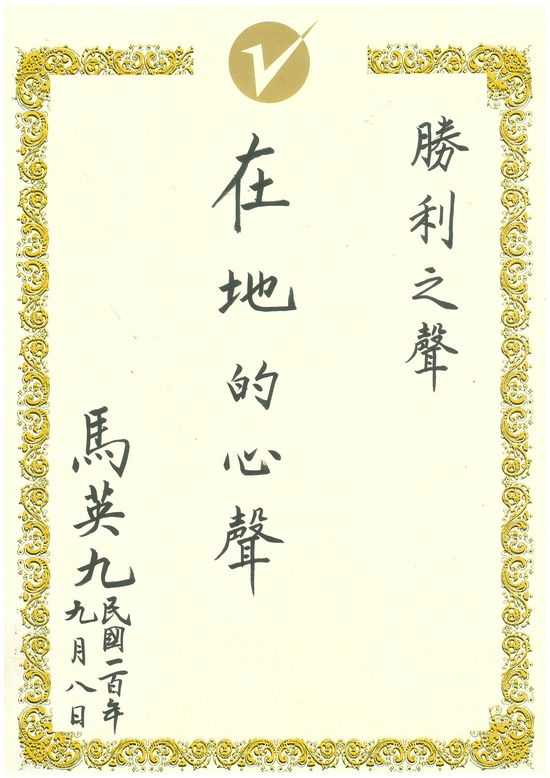 勝利之聲
在地的心聲
馬英九
民國一百年
九月八日